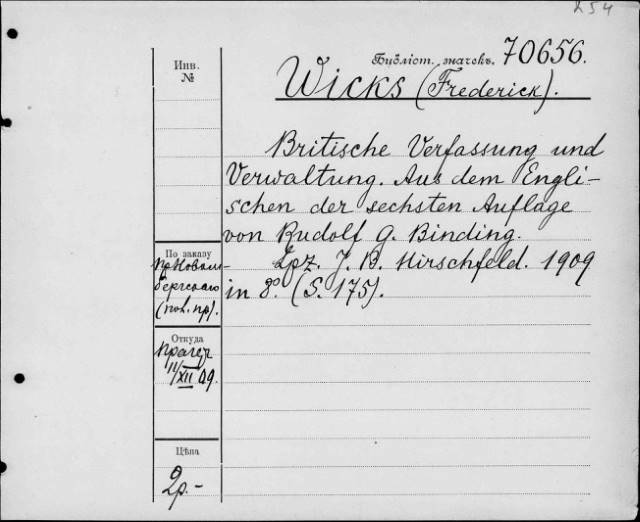 254
Библіот. значокъ. 70656.
Инв.
№
Wicks (Frederick).
Britische Verfassung und
Verwaltung. Aus dem Engli-
schen der sechsten Auflage
von Rudolf G. Binding.
Lpz. J. B. Hirschfeld. 1909
in 8º. (S. 175).
По заказу
пр.
(пол. пр).
Откуда
Прагер
11/XII 09.
Цѣна
2р.-